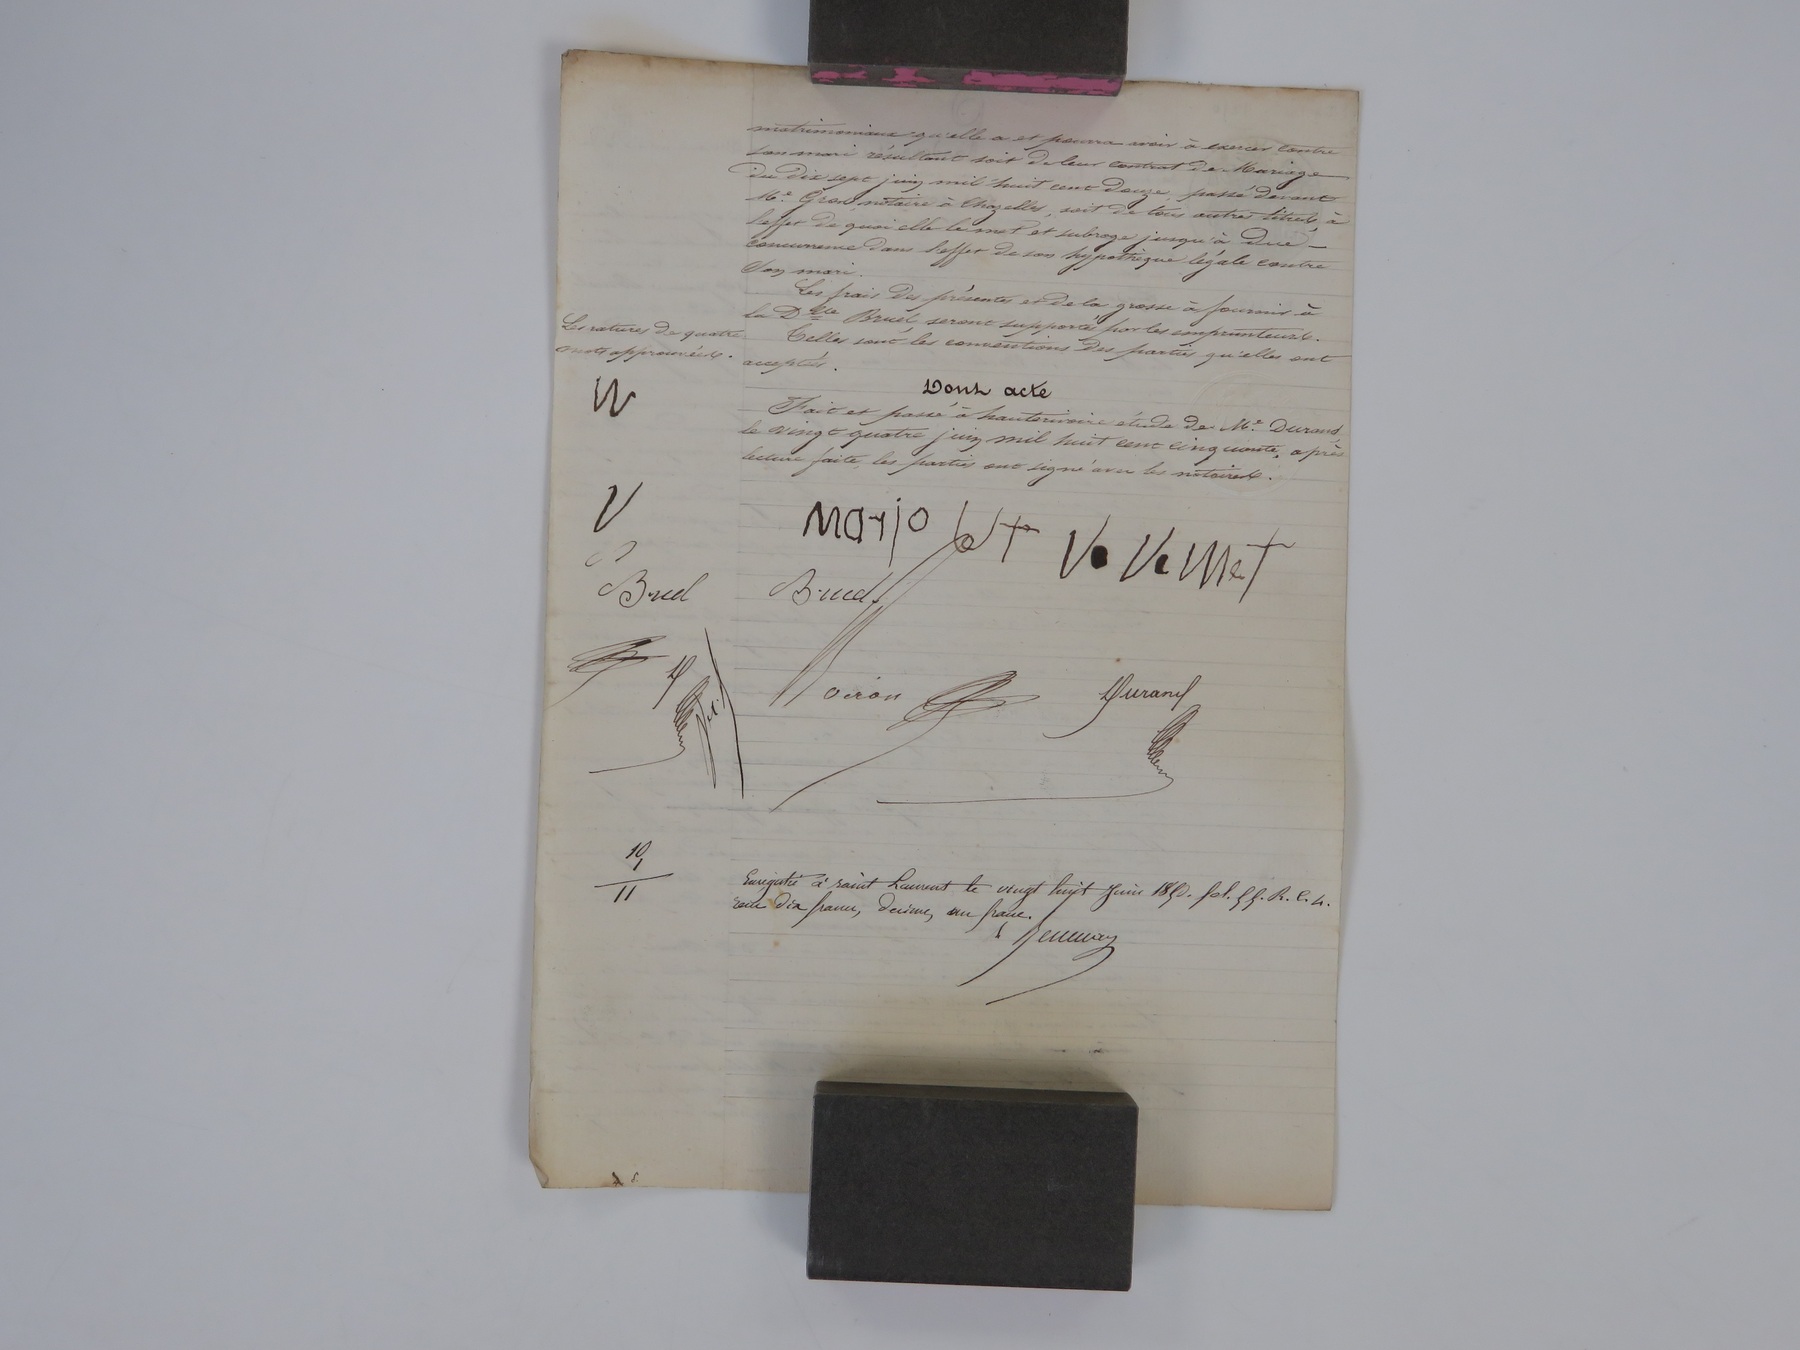 matrimoniaux qu'elle a et pourra avoir à exercer contre
son mari résultant soit de leur contrat de Mariage
du dix sept juin mil huit cent douze, passé devant
Me. Gros notaire à Chazelles, soit de tous autres titres, à
l'effet de quoi elle le met et subroge jusqu'à due
concurrence dans l'effet de son hypothèque légale contre
son mari.
Les frais des présentes et de la grosse à fournir à
la Dlle Bruel, seront supportés par les emprunteurs.
Telles sont les conventions des parties qu'elles ont
acceptés.
Les ratures de quatre
mots approuvées.
Dont acte
Fait et passé à hauterivoire étude de Me. Durand
le vingt quatre juin mil huit cent cinquante, après
lecture faite, les parties ont signé avec les notaires.
Bruel
Bruel
Durand
10
1
11
Enregistré à saint Laurent le vingt huit juin 1850. fol. R. C. 4.
reçu dix francs, decime, un franc.